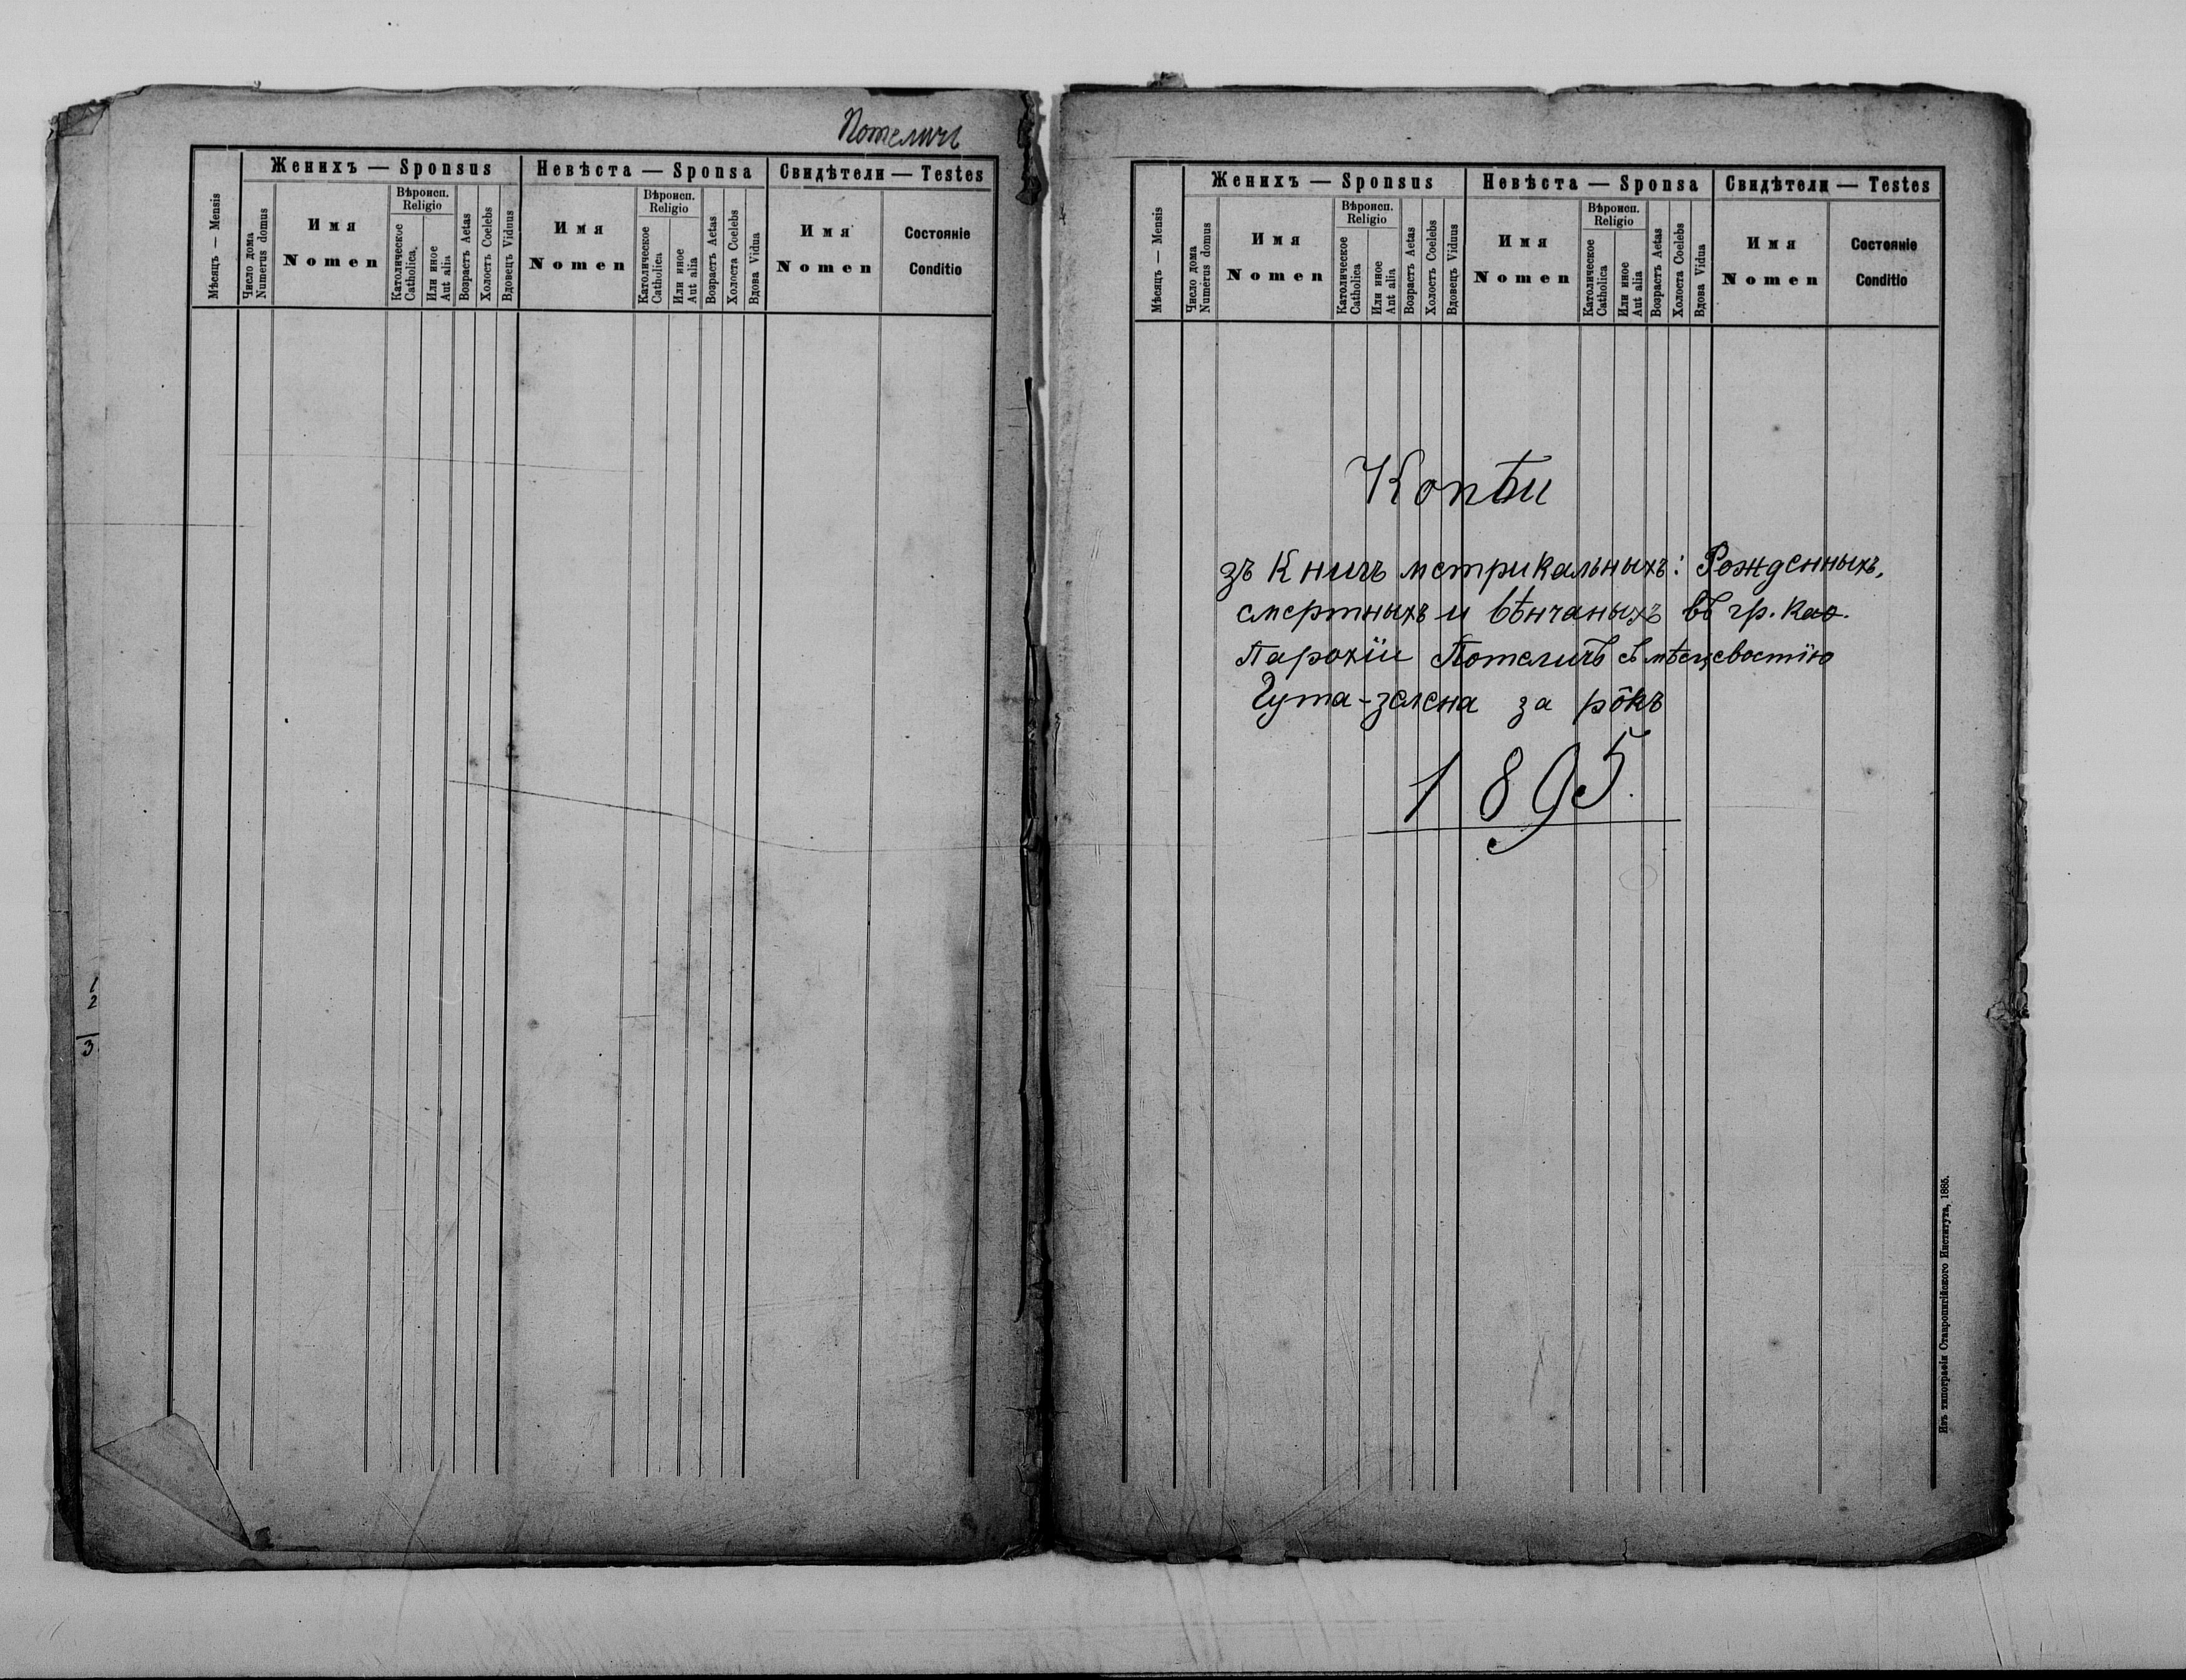 Потеличъ
Женихъ — Sponsus
Невѣста — Sponsa
Свидѣтели — Testes
Мѣсяцъ — Mensis
Число дома
Numerus domus
Имя
Nomen
Вѣроисп.
Religio
Католическое
Catholica.
Или иное
Aut alia
Возрастъ Aetas
Холостъ Coelebs
Вдовецъ Viduus
Имя
Nomen
Вѣроисп.
Religio
Католическое
Catholica
Или иное
Aut alia
Возрастъ Aetas
Холоста Coelebs
Вдова Vidua
Имя
Nomen
Состояніе
Conditio
1
2
3
Женихъ — Sponsus
Невѣста — Sponsa
Свидѣтели — Testes
Мѣсяцъ — Mensis
Число дома
Numerus domus
Имя
Nomen
Вѣроисп.
Religio
Католическое
Catholica
Или иное
Aut alia
Возрастъ Aetas
Холостъ Coelebs
Вдовецъ Viduus
Имя
Nomen
Вѣроисп.
Religio
Католическое
Catholica
Или иное
Aut alia
Возрастъ Aetas
Холоста Coelebs
Вдова Vidua
Имя
Nomen
Состояніе
Conditio
Копѣи
зъ Книгъ метрикальныхъ: Рожденныхъ,
смертныхъ и вѣнчаныхъ въ гр. каѳ.
Парохіи Потеличъ съ мѣсцевостію
Гута-зелена за рôкъ
1895.
Изъ типографіи Ставропигійского Института, 1885.